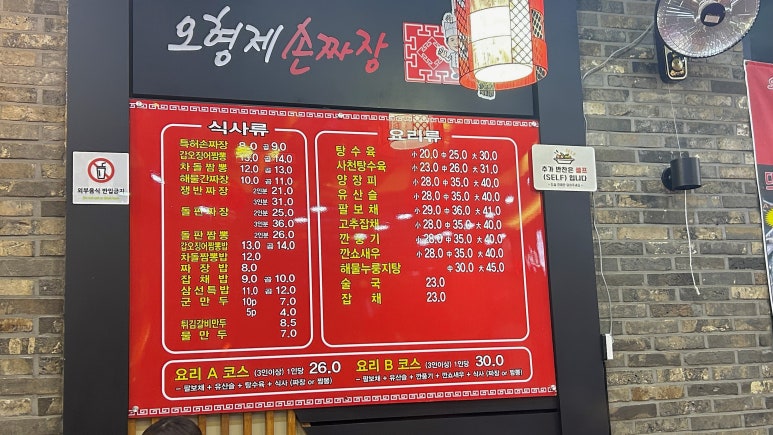 오형제손짜장
식사류
특허손짜장 8.0 곱9.0
갑오징어짬뽕 13.0 곱14.0
차돌짬뽕 12.0 곱13.0
해물간짜장 10.0 곱11.0
쟁반짜장 2인분 21.0
3인분 31.0
돌판짜장 2인분 25.0
3인분 36.0
돌판짬뽕 2인분 26.0
갑오징어짬뽕밥 13.0 곱14.0
차돌짬뽕밥 12.0
짜장밥 8.0
잡채밥 9.0 곱10.0
삼선특밥 11.0 곱12.0
군만두 10p 7.0
5p 4.0
튀김갈비만두 8.5
물만두 7.0
요리류
탕수육 小20.0 中25.0 大30.0
사천탕수육 小23.0 中26.0 大31.0
양장피 小28.0 中35.0 大40.0
유산슬 小28.0 中35.0 大40.0
팔보채 小29.0 中36.0 大41.0
고추잡채 小28.0 中35.0 大40.0
깐풍기 小28.0 中35.0 大40.0
깐쇼새우 小28.0 中35.0 大40.0
해물누룽지탕 中30.0 大45.0
술국 23.0
잡채 23.0
요리 A 코스 (3인이상) 1인당 26.0
– 팔보채 + 유산슬 + 탕수육 + 식사 (짜장 or 짬뽕)
요리 B 코스 (3인이상) 1인당 30.0
– 팔보채 + 유산슬 + 깐풍기 + 깐쇼새우 + 식사 (짜장 or 짬뽕)
외부음식 반입금지
추가 반찬은 셀프
(SELF) 입니다